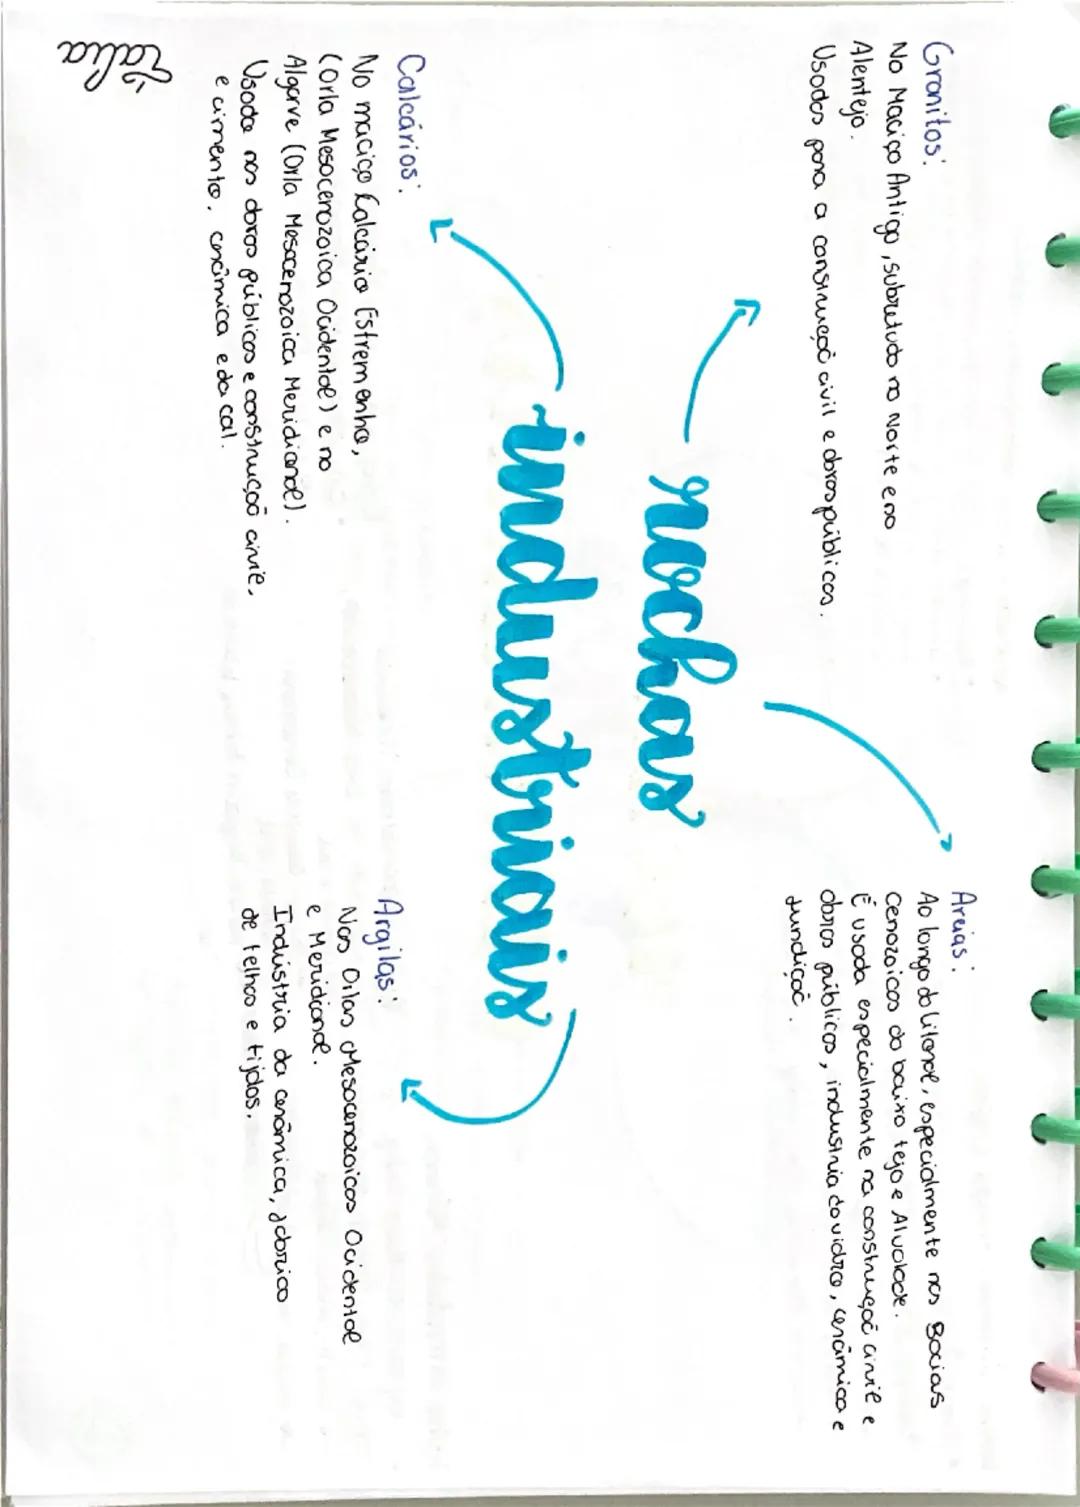 Granitos:
No Maciço Antigo, sobretudo no Norte e no
Alentejo.
Usados para a construção civil e obras públicas.
Areias:
Ao longo do litoral, especialmente nas Bacias
Cenozoicas do baixo tejo e Alvalade.
É usada especialmente na construção civil e
obras públicas, industria do vidro, cerâmica e
fundição.
rochas
industriais
Calcários:
No maciço Calcário Estremenho,
(orla Mesocenozoica Ocidental) e no
Algarve (Orla Mesocenozoica Meridional).
Usado nas obras públicas e construção civil,
e cimento, cerâmica e da cal.
Argilas:
Nas Orlas Mesocenozoicas Ocidental
e Meridional.
Indústria da cerâmica, fabrico
de telhas e tijolos.